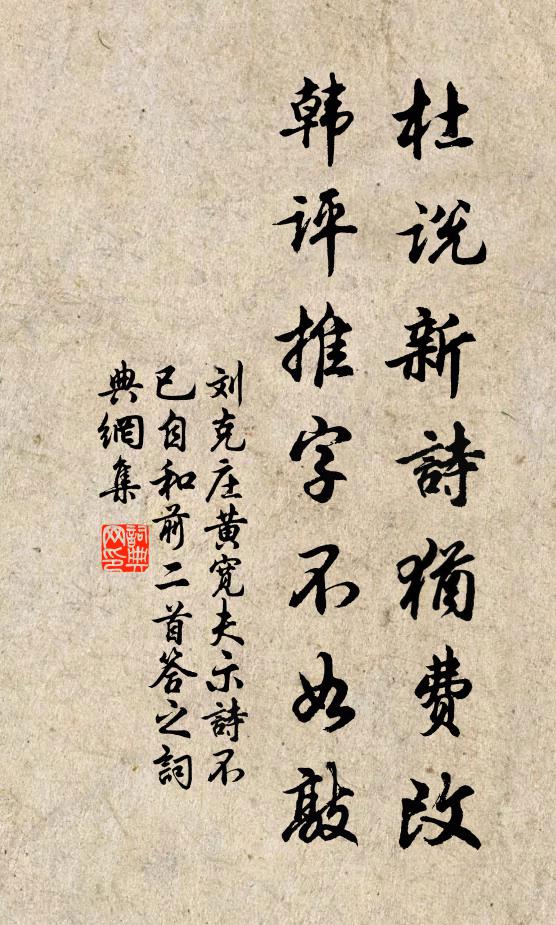 杜说新詩猶费改
韩评推字不如敲
刘克庄黄宽夫示詩不
已自和前二首答之詞
典網集
詞典
网印